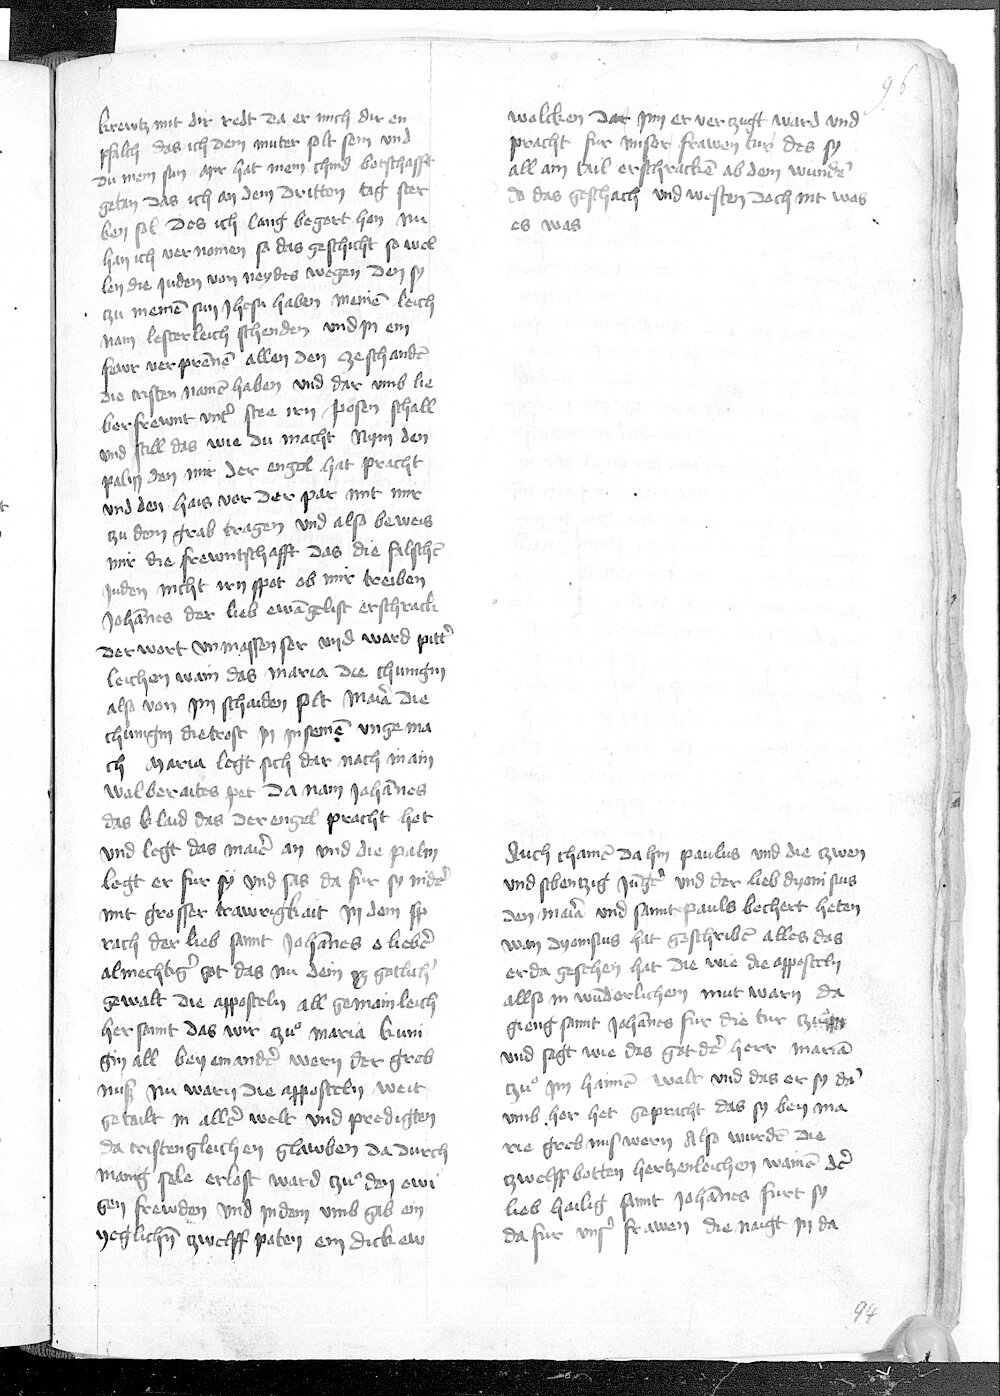 96
krewtz mit dir redt da er mich dir en
pfalch das ich dein muter solt sein und
du mein sun Mir hat mein chind botschafft
getan das ich an dem dritten tag ster
ben sol Des ich lang begert han Nu
han ich vernomen so das geschicht so wel
len die Juden von neydes wegen den sy
zu meinē sun Jhesu haben meinē leich
nam lesterleich schenden und in ein
fewr verprēnē allen den ze schandē
die cristen namē haben und dar umb lie
ber frewnt untˀ stee irn posen schall
und still das wie du macht Nym den
palm den mir der engel hat pracht
und den hais vor der par mit mir
zu dem grab tragen und also beweis
mir die frewntschafft das die falschē
Juden nicht irn spot ob mir treiben
Johānes der lieb ewāgelist erschrack
der wort unmassen ser und ward pittˀ
leichen wain das maria die chunigin
also von im schaiden solt Maria die
chunigin die trost in in seinē unge ma
ch Maria legt sich dar nach in ain
wol beraites pet Da nam Johānes
das klaid das der engel pracht het
und legt das maiē an und die palm
legt er fur sy und sas da fur sy nidˀ
mit grosser trawrigkait In dem sp
rach der lieb sannt Johānes o liebˀ
almechtigˀ got das nu dein gotlichˀ
gewalt die apposteln all gemainleich
her sannt das wir zuͦ maria kuni
gin all bey einandˀ wern der greb
nuß Nu warn die apposteln weit
getailt in allˀ welt und predigten
da cristengleichen glawben da durch
manig sele erlost ward zuͦ den ewi
gen frewden und in dem umb gab ein
yeglichn̄ zwelff poten ein dick ew
wolcken dar inn er verzugt ward und
pracht fur unser frawen tur des sy
all am tail erschrackē ab dem wundˀ
do das geschach und westen doch nit was
es was
Auch chamē da hin paulus und die zwen
und sibentzig Jungˀ und der lieb dyonisius
den maria und sannt pauls bechert heten
wan dyonisius hat geschribē alles das
er da gesehen hat die wie die apposteln
allso in wūderlichem mut warn da
gieng sannt Johānes fur die tur zuͦ in
und sagt wie das got dˀ herr mariā
zuͦ im haimē wolt und das er sy dar
umb her het gepracht das sy bey ma
rie grebnus wern Also wurdē die
zwelff botten hertzenleichen wainē dˀ
lieb hailig sannt Johānes furt sy
da fur unsˀ frawen die naigt in da
94